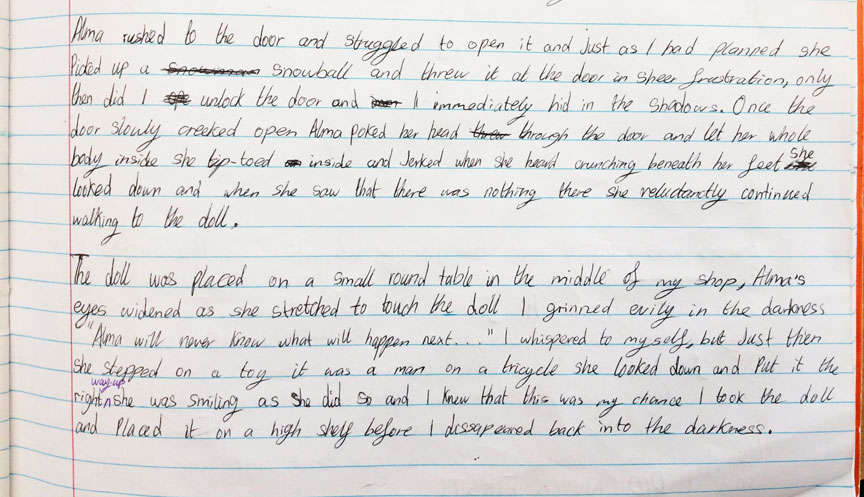 Alma rushed to the door and struggled to open it and just as I had planned she
Picked up a snowman snowball and threw it at the door in sheer frustration, only
then did I unlock the door and I immediately hid in the shadows. Once the
door slowly creeked open Alma poked her head threw through the door and let her whole
body inside she tip-toed inside and Jerked when she heard crunching beneath her feet she
looked down and when she saw that there was nothing there she reluctantly continued
walking to the doll.
The doll was placed on a small round table in the middle of my shop, Alma's
eyes widened as she stretched to touch the doll I grinned evily in the darkness
"Alma will never know what will happen next..." I whispered to myself, but Just then
she stepped on a toy it was a man on a tricycle she looked down and Put it the
right way up she was smiling as she did so and I knew that this was my chance I took the doll
and Placed it on a high shelf before I dissapeared back into the darkness.